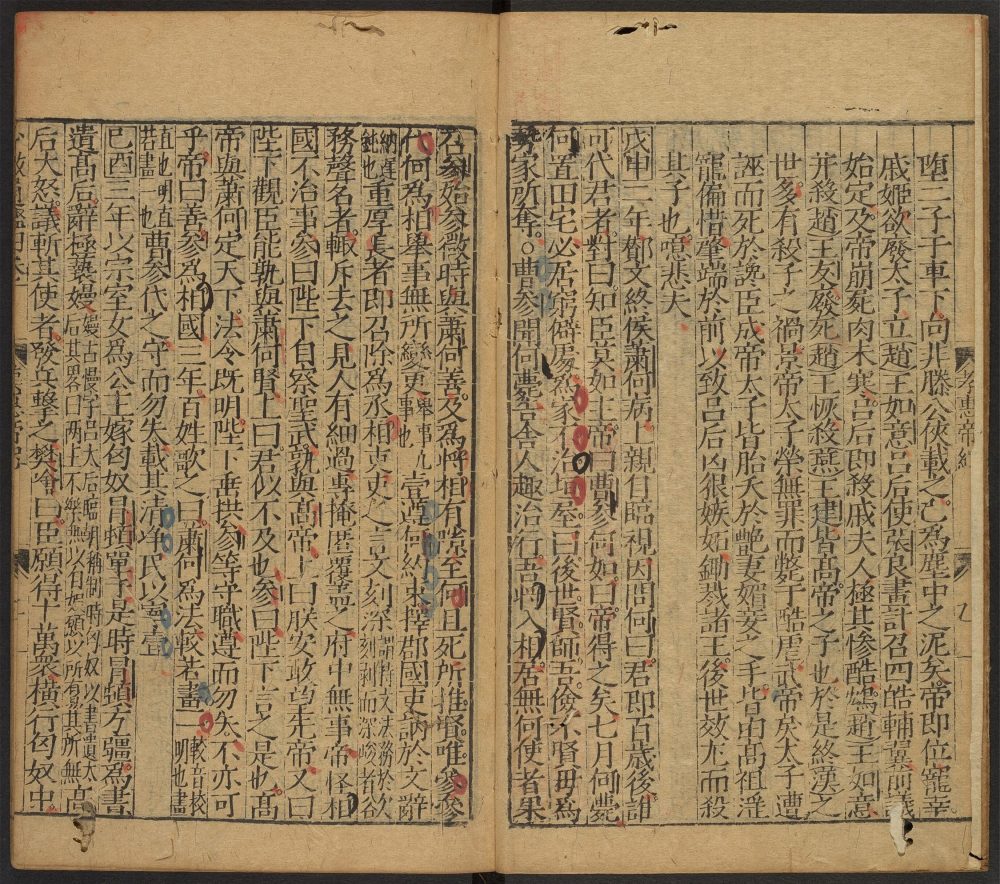 墮二子于車下向非滕公俠載之已為塵中之泥矣帝即位寵幸
戚姬欲廢太子立趙王如意呂后使張良畫計召四皓輔翼前議
始定及帝崩死肉未寒呂后即殺戚夫人極其慘酷鴆趙王如意
并殺趙王友廢死趙王恢殺燕王建皆高帝之子也於是終漢之
世多有殺子之禍景帝太子榮無罪而斃于酷虐武帝戾太子遭
誣而死於讒臣成帝太子皆胎夭於艷妻媚妾之手皆由高祖淫
寵備惜肇端於前以致呂后凶很嫉妬鋤㦲諸王後世效尤而殺
其子也噫悲夫
戊申二年酇文終侯蕭何病上親自臨視因問何曰君即百歲後誰
可代君者對曰知臣莫如主帝曰曹參何如曰帝得之矣七月何薨
何置田宅必居窮僻處為家不治垣屋曰後世賢師吾儉不賢毋為
勢家所奪○曹參聞何薨告舍人趣治行吾將入相居無何使者果
孝惠帝紀
九
召參始參微時與蕭何善及為將相有隙至何且死所推賢唯參參
代何為相舉事無所變更舉事凡事也壹遵何約束擇郡國吏訥於文辭
訥遲鈍也重厚長者即召除為丞相吏吏之言文刻深謂持文法務於欲刻剥而深峻者谷
務聲名者輙斥去之見人有細過專掩匿覆蓋之府中無事帝怪相
國不治事參曰陛下自察聖武孰與高帝上曰朕安敢望先帝又曰
陛下觀臣能孰與蕭何賢上曰君似不及也參曰陛下言之是也高
帝與蕭何定天下法令既明陛下垂拱參等守職遵而勿失不亦可
乎帝曰善參為相國三年百姓歌之曰蕭何為法較若畫一較音校明也畫
直也明直若畫一也曹參代之守而勿失載其清淨民以寧壹
己酉三年以宗室女為公主嫁匈奴冒頓單于是時冒頓方彊為書
遺高后辭極褻嫚嫚古慢字呂太后臨朝稱制時匈奴以書遺太后其畧曰兩主不樂無以自娛願以所有易其所無高
后大怒議斬其使者發兵擊之樊噲曰臣願得十萬衆橫行匈奴中